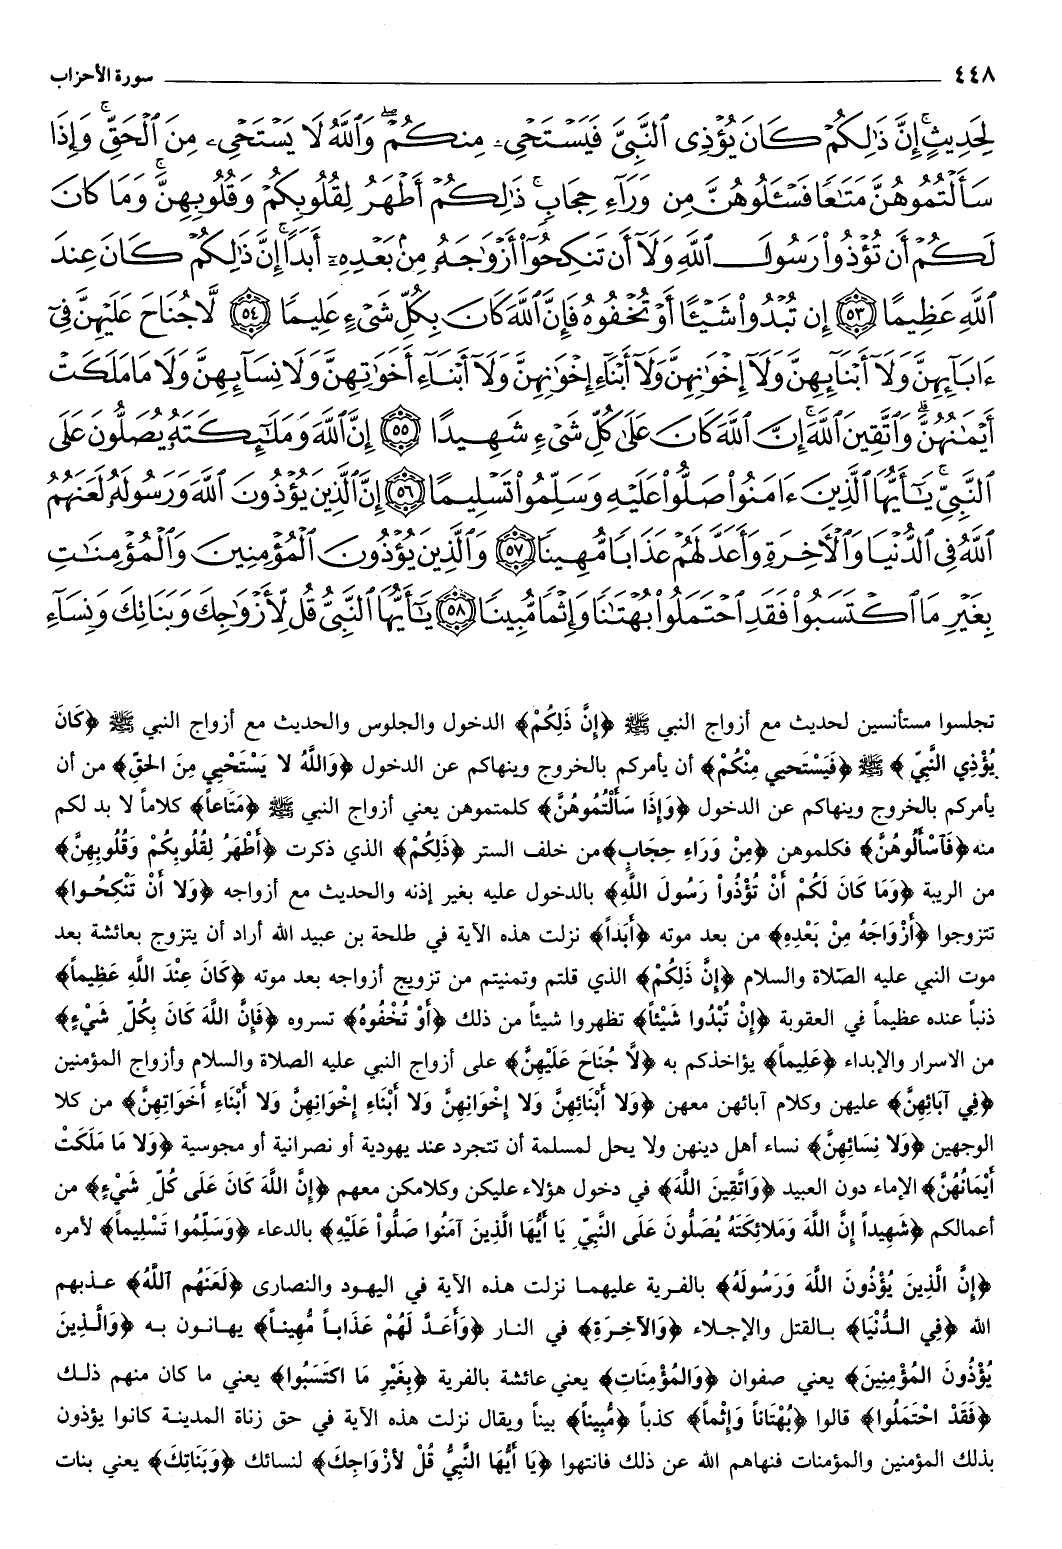 ٤٤٨ سورة الأحزاب
لِحَدِيثٍ إِنَّ ذَٰلِكُمْ كَانَ يُؤْذِى ٱلنَّبِىَّ فَيَسْتَحْىِۦ مِنكُمْ وَٱللَّهُ لَا يَسْتَحْىِۦ مِنَ ٱلْحَقِّ وَإِذَا
سَأَلْتُمُوهُنَّ مَتَٰعًا فَسْـَٔلُوهُنَّ مِن وَرَآءِ حِجَابٍ ذَٰلِكُمْ أَطْهَرُ لِقُلُوبِكُمْ وَقُلُوبِهِنَّ وَمَا كَانَ
لَكُمْ أَن تُؤْذُوا۟ رَسُولَ ٱللَّهِ وَلَآ أَن تَنكِحُوٓا۟ أَزْوَٰجَهُۥ مِنۢ بَعْدِهِۦٓ أَبَدًا إِنَّ ذَٰلِكُمْ كَانَ عِندَ
ٱللَّهِ عَظِيمًا ٥٣ إِن تُبْدُوا۟ شَيْـًٔا أَوْ تُخْفُوهُ فَإِنَّ ٱللَّهَ كَانَ بِكُلِّ شَىْءٍ عَلِيمًا ٥٤ لَّا جُنَاحَ عَلَيْهِنَّ فِىٓ
ءَابَآئِهِنَّ وَلَآ أَبْنَآئِهِنَّ وَلَآ إِخْوَٰنِهِنَّ وَلَآ أَبْنَآءِ إِخْوَٰنِهِنَّ وَلَآ أَبْنَآءِ أَخَوَٰتِهِنَّ وَلَا نِسَآئِهِنَّ وَلَا مَا مَلَكَتْ
أَيْمَٰنُهُنَّ وَٱتَّقِينَ ٱللَّهَ إِنَّ ٱللَّهَ كَانَ عَلَىٰ كُلِّ شَىْءٍ شَهِيدًا ٥٥ إِنَّ ٱللَّهَ وَمَلَٰٓئِكَتَهُۥ يُصَلُّونَ عَلَى
ٱلنَّبِىِّ يَٰٓأَيُّهَا ٱلَّذِينَ ءَامَنُوا۟ صَلُّوا۟ عَلَيْهِ وَسَلِّمُوا۟ تَسْلِيمًا ٥٦ إِنَّ ٱلَّذِينَ يُؤْذُونَ ٱللَّهَ وَرَسُولَهُۥ لَعَنَهُمُ
ٱللَّهُ فِى ٱلدُّنْيَا وَٱلْءَاخِرَةِ وَأَعَدَّ لَهُمْ عَذَابًا مُّهِينًا ٥٧ وَٱلَّذِينَ يُؤْذُونَ ٱلْمُؤْمِنِينَ وَٱلْمُؤْمِنَٰتِ
بِغَيْرِ مَا ٱكْتَسَبُوا۟ فَقَدِ ٱحْتَمَلُوا۟ بُهْتَٰنًا وَإِثْمًا مُّبِينًا ٥٨ يَٰٓأَيُّهَا ٱلنَّبِىُّ قُل لِّأَزْوَٰجِكَ وَبَنَاتِكَ وَنِسَآءِ
تجلسوا مستأنسين لحديث مع أزواج النبي ﷺ ﴿إِنَّ ذَلِكُمْ﴾ الدخول والجلوس والحديث مع أزواج النبي ﷺ ﴿كَانَ
يُؤْذِي النَّبِيّ﴾ ﷺ ﴿فَيَسْتَحيي مِنْكُمْ﴾ أن يأمركم بالخروج وينهاكم عن الدخول ﴿وَاللَّهُ لا يَسْتَحْيِي مِنَ الحَقِّ﴾ من أن
يأمركم بالخروج وينهاكم عن الدخول ﴿وَإِذَا سَأَلْتُمُوهُنَّ﴾ كلمتموهن يعني أزواج النبي ﷺ ﴿مَتَاعاً﴾ كلاماً لا بد لكم
منه ﴿فَآسْأَلُوهُنَّ﴾ فكلموهن ﴿مِنْ وَرَاءِ حِجَابٍ﴾ من خلف الستر ﴿ذَلِكُمْ﴾ الذي ذكرت ﴿أَطْهَرُ لِقُلُوبِكُمْ وَقُلُوبِهِنَّ﴾
من الريبة ﴿وَمَا كَانَ لَكُمْ أَنْ تُؤْذُواْ رَسُولَ اللَّهِ﴾ بالدخول عليه بغير إذنه والحديث مع أزواجه ﴿وَلا أَنْ تَنْكِحُوا﴾
تتزوجوا ﴿أَزْوَاجَهُ مِنْ بَعْدِهِ﴾ من بعد موته ﴿أَبَداً﴾ نزلت هذه الآية في طلحة بن عبيد الله أراد أن يتزوج بعائشة بعد
موت النبي عليه الصّلاة والسلام ﴿إِنَّ ذَلِكُمْ﴾ الذي قلتم وتمنيتم من تزويج أزواجه بعد موته ﴿كَانَ عِنْدَ اللَّهِ عَظِيماً﴾
ذنباً عنده عظيماً في العقوبة ﴿إِنْ تُبْدُوا شَيْئاً﴾ تظهروا شيئاً من ذلك ﴿أَوْ تُخْفُوهُ﴾ تسروه ﴿فَإِنَّ اللَّهَ كَانَ بِكُلِّ شَيْءٍ﴾
من الاسرار والإبداء ﴿عَلِيماً﴾ يؤاخذكم به ﴿لاَّ جُنَاحَ عَلَيْهِنَّ﴾ على أزواج النبي عليه الصلاة والسلام وأزواج المؤمنين
﴿فِي آبَائِهِنَّ﴾ عليهن وكلام آبائهن معهن ﴿وَلا أَبْنَائِهِنَّ وَلا إِخْوَانِهِنَّ وَلا أَبْنَاءِ إِخْوَانِهِنَّ وَلا أَبْنَاءِ أَخَوَاتِهِنَّ﴾ من كلا
الوجهين ﴿وَلا نِسَائِهِنَّ﴾ نساء أهل دينهن ولا يحل لمسلمة أن تتجرد عند يهودية أو نصرانية أو مجوسية ﴿وَلا مَا مَلَكَتْ
أَيْمَانُهُنَّ﴾ الإماء دون العبيد ﴿وَاتَّقِينَ اللَّهَ﴾ في دخول هؤلاء عليكن وكلامكن معهم ﴿إِنَّ اللَّهَ كَانَ عَلَى كُلِّ شَيْءٍ﴾ من
أعمالكم ﴿شَهِيداً إِنَّ اللَّهَ وَمَلائِكَتَهُ يُصَلُّونَ عَلَى النَّبِيِّ يَا أَيُّهَا الَّذِينَ آمَنُوا صَلُّواْ عَلَيْهِ﴾ بالدعاء ﴿وَسَلِّمُوا تَسْلِيماً﴾ لأمره
﴿إِنَّ الَّذِينَ يُؤْذُونَ اللَّهَ وَرَسُولَهُ﴾ بالفرية عليهما نزلت هذه الآية في اليهود والنصارى ﴿لَعَنَهُم آللَّهُ﴾ عذبهم
الله ﴿فِي الدُّنْيَا﴾ بالقتل والإجلاء ﴿وَالآخِرَةِ﴾ في النار ﴿وَأَعَدَّ لَهُمْ عَذَاباً مُّهِيناً﴾ يهانون به ﴿وَالَّذِينَ
يُؤْذُونَ المُؤْمِنِينَ﴾ يعني صفوان ﴿وَالمُؤْمِنَاتِ﴾ يعني عائشة بالفرية ﴿بِغَيْرِ مَا اكتَسَبُوا﴾ يعني ما كان منهم ذلك
﴿فَقَدْ احْتَمَلُوا﴾ قالوا ﴿بُهْتَاناً وَإِثْماً﴾ كذباً ﴿مُّبِيناً﴾ بيناً ويقال نزلت هذه الآية في حق زناة المدينة كانوا يؤذون
بذلك المؤمنين والمؤمنات فنهاهم الله عن ذلك فانتهوا ﴿يَا أَيُّهَا النَّبِيُّ قُلْ لأزْوَاجِكَ﴾ لنسائك ﴿وَبَنَاتِكَ﴾ يعني بنات